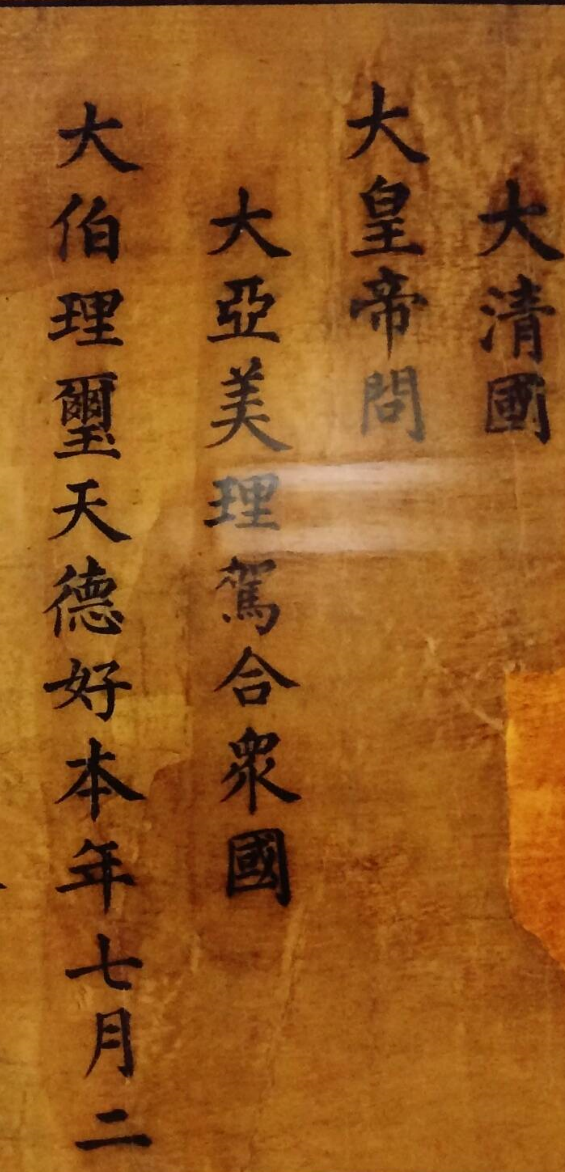 大清國
大皇帝問
大亞美理駕合衆國
大伯理璽天德好本年七月二